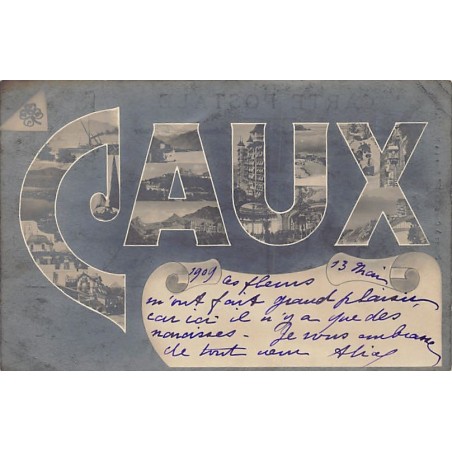 CARTE POSTALE
CAUX
1909 13 Mai
es fleurs
m'ont fait grand plaisir,
car ici il n'y a que des
narcisses - Je vous embrasse
de tout cœur